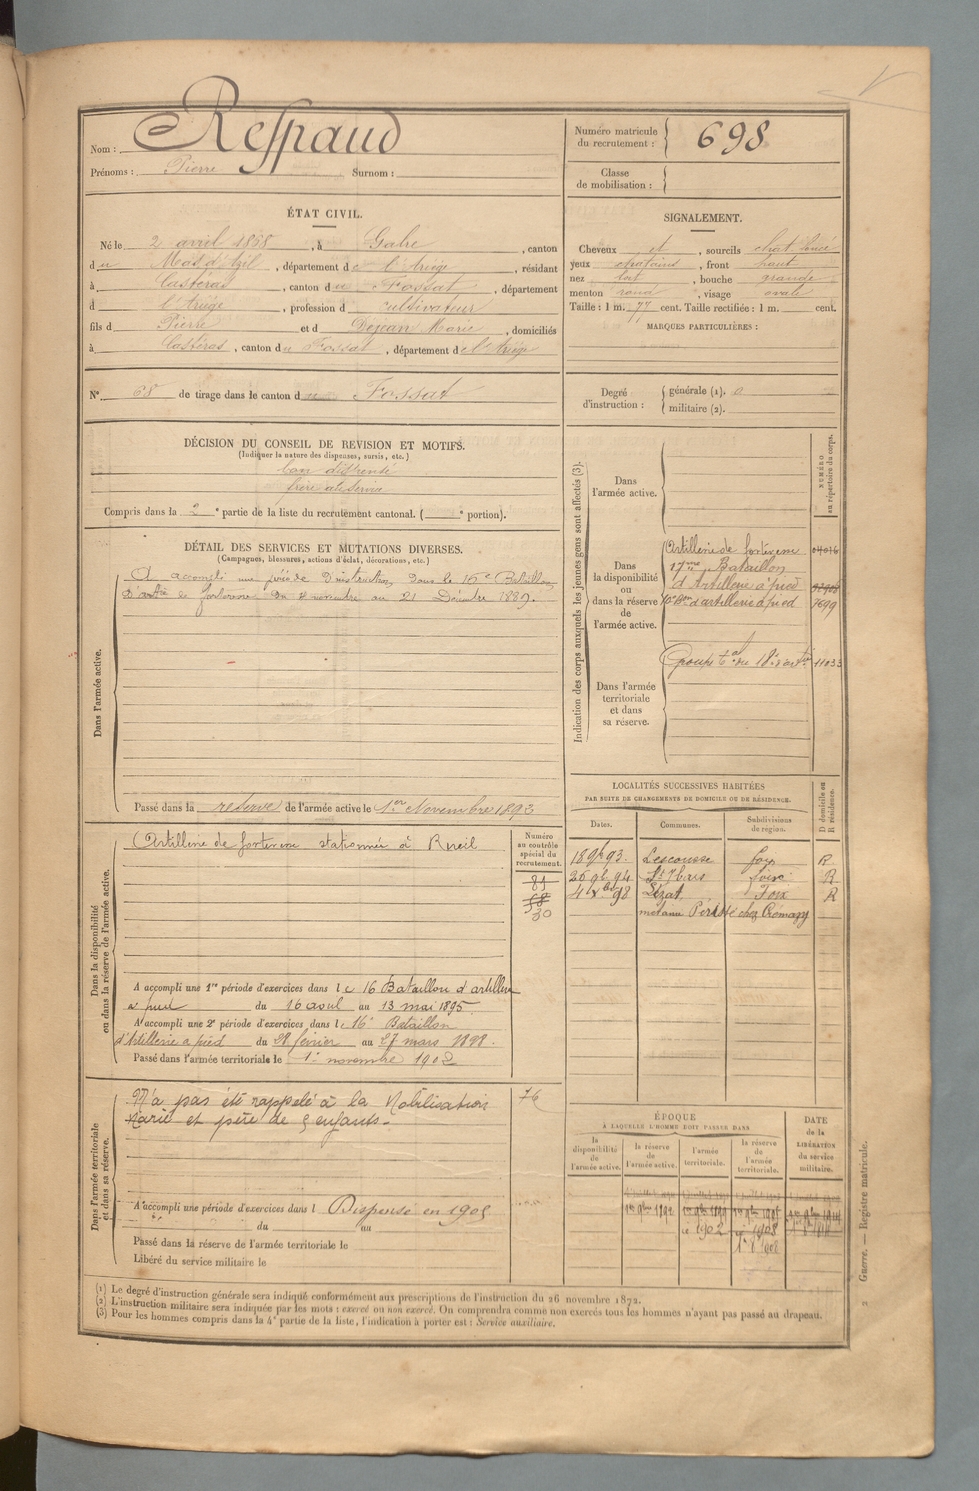 Nom : Respaud
Prénoms : Pierre Surnom :
Numéro matricule du recrutement : 698
Classe de mobilisation :
ÉTAT CIVIL.
Né le 2 avril 1868, à Gabre, canton
du Mas d'Azil, département de l'Ariège, résidant
à Castéras, canton du Fossat, département
d l'Ariège, profession de cultivateur
fils d Pierre et d Dejean Marie, domiciliés
à Castéras, canton du Fossat, département de l'Ariège
N° 68 de tirage dans le canton du Fossat
SIGNALEMENT.
Cheveux et, sourcils chat. foncé
yeux chatains, front haut
nez fort, bouche grande
menton rond, visage ovale
Taille : 1 m. 77 cent. Taille rectifiée : 1 m. cent.
MARQUES PARTICULIÈRES :
Degré d'instruction : générale (1). 0
militaire (2).
DÉCISION DU CONSEIL DE REVISION ET MOTIFS.
(Indiquer la nature des dispenses, sursis, etc.)
bon dispensé
frère au service
Compris dans la 2e partie de la liste du recrutement cantonal. ( e portion).
DÉTAIL DES SERVICES ET MUTATIONS DIVERSES.
(Campagnes, blessures, actions d'éclat, décorations, etc.)
Dans l'armée active.
A accompli une période d'instruction dans le 16e Bataillon
d'art de forteresse du novembre au 21 Décembre 1889.
Passé dans la réserve de l'armée active le 1er Novembre 1892
Indication des corps auxquels les jeunes gens sont affectés (3).
NUMÉRO au répertoire du corps.
Dans l'armée active.
Dans la disponibilité ou dans la réserve de l'armée active.
Artillerie de forteresse
17me Bataillon
d'Artillerie à pied
16e Bon d'artillerie à pied 7699
Dans l'armée territoriale et dans sa réserve.
Groupe tal du 18e d'artie 11033
LOCALITÉS SUCCESSIVES HABITÉES
PAR SUITE DE CHANGEMENTS DE DOMICILE OU DE RÉSIDENCE.
Dates. Communes. Subdivisions de région. D domicile ou R résidence.
18 9b 93. Lescousse foix R
26 9b 94 St Ybars foix R
4 Xbre 98 Lézat Foix R
chez Crémazy
Dans la disponibilité ou dans la réserve de l'armée active.
Artillerie de forteresse stationnée à Rueil
Numéro au contrôle spécial du recrutement.
81
58
30
A accompli une 1re période d'exercices dans le 16 Bataillon d'artillerie
à pied du 16 avril au 13 mai 1895
A accompli une 2e période d'exercices dans le 16e Bataillon
d'Artillerie à pied du 28 février au 27 mars 1898.
Passé dans l'armée territoriale le 1er novembre 1902
Dans l'armée territoriale et dans sa réserve.
N'a pas été rappelé à la Mobilisation 76
Marié et père de 5 enfants.
A accompli une période d'exercices dans l Dispensé en 1905
du au
Passé dans la réserve de l'armée territoriale le
Libéré du service militaire le
ÉPOQUE
À LAQUELLE L'HOMME DOIT PASSER DANS
la disponibilité de l'armée active. la réserve de l'armée active. l'armée territoriale. la réserve de l'armée territoriale.
DATE de la LIBÉRATION du service militaire.
1er 9bre 1892 1er 9bre 1899
1902 1908
(1) Le degré d'instruction générale sera indiqué conformément aux prescriptions de l'instruction du 26 novembre 1872.
(2) L'instruction militaire sera indiquée par les mots : exercé ou non exercé. On comprendra comme non exercés tous les hommes n'ayant pas passé au drapeau.
(3) Pour les hommes compris dans la 4e partie de la liste, l'indication à porter est : Service auxiliaire.
Guerre. — Registre matricule.